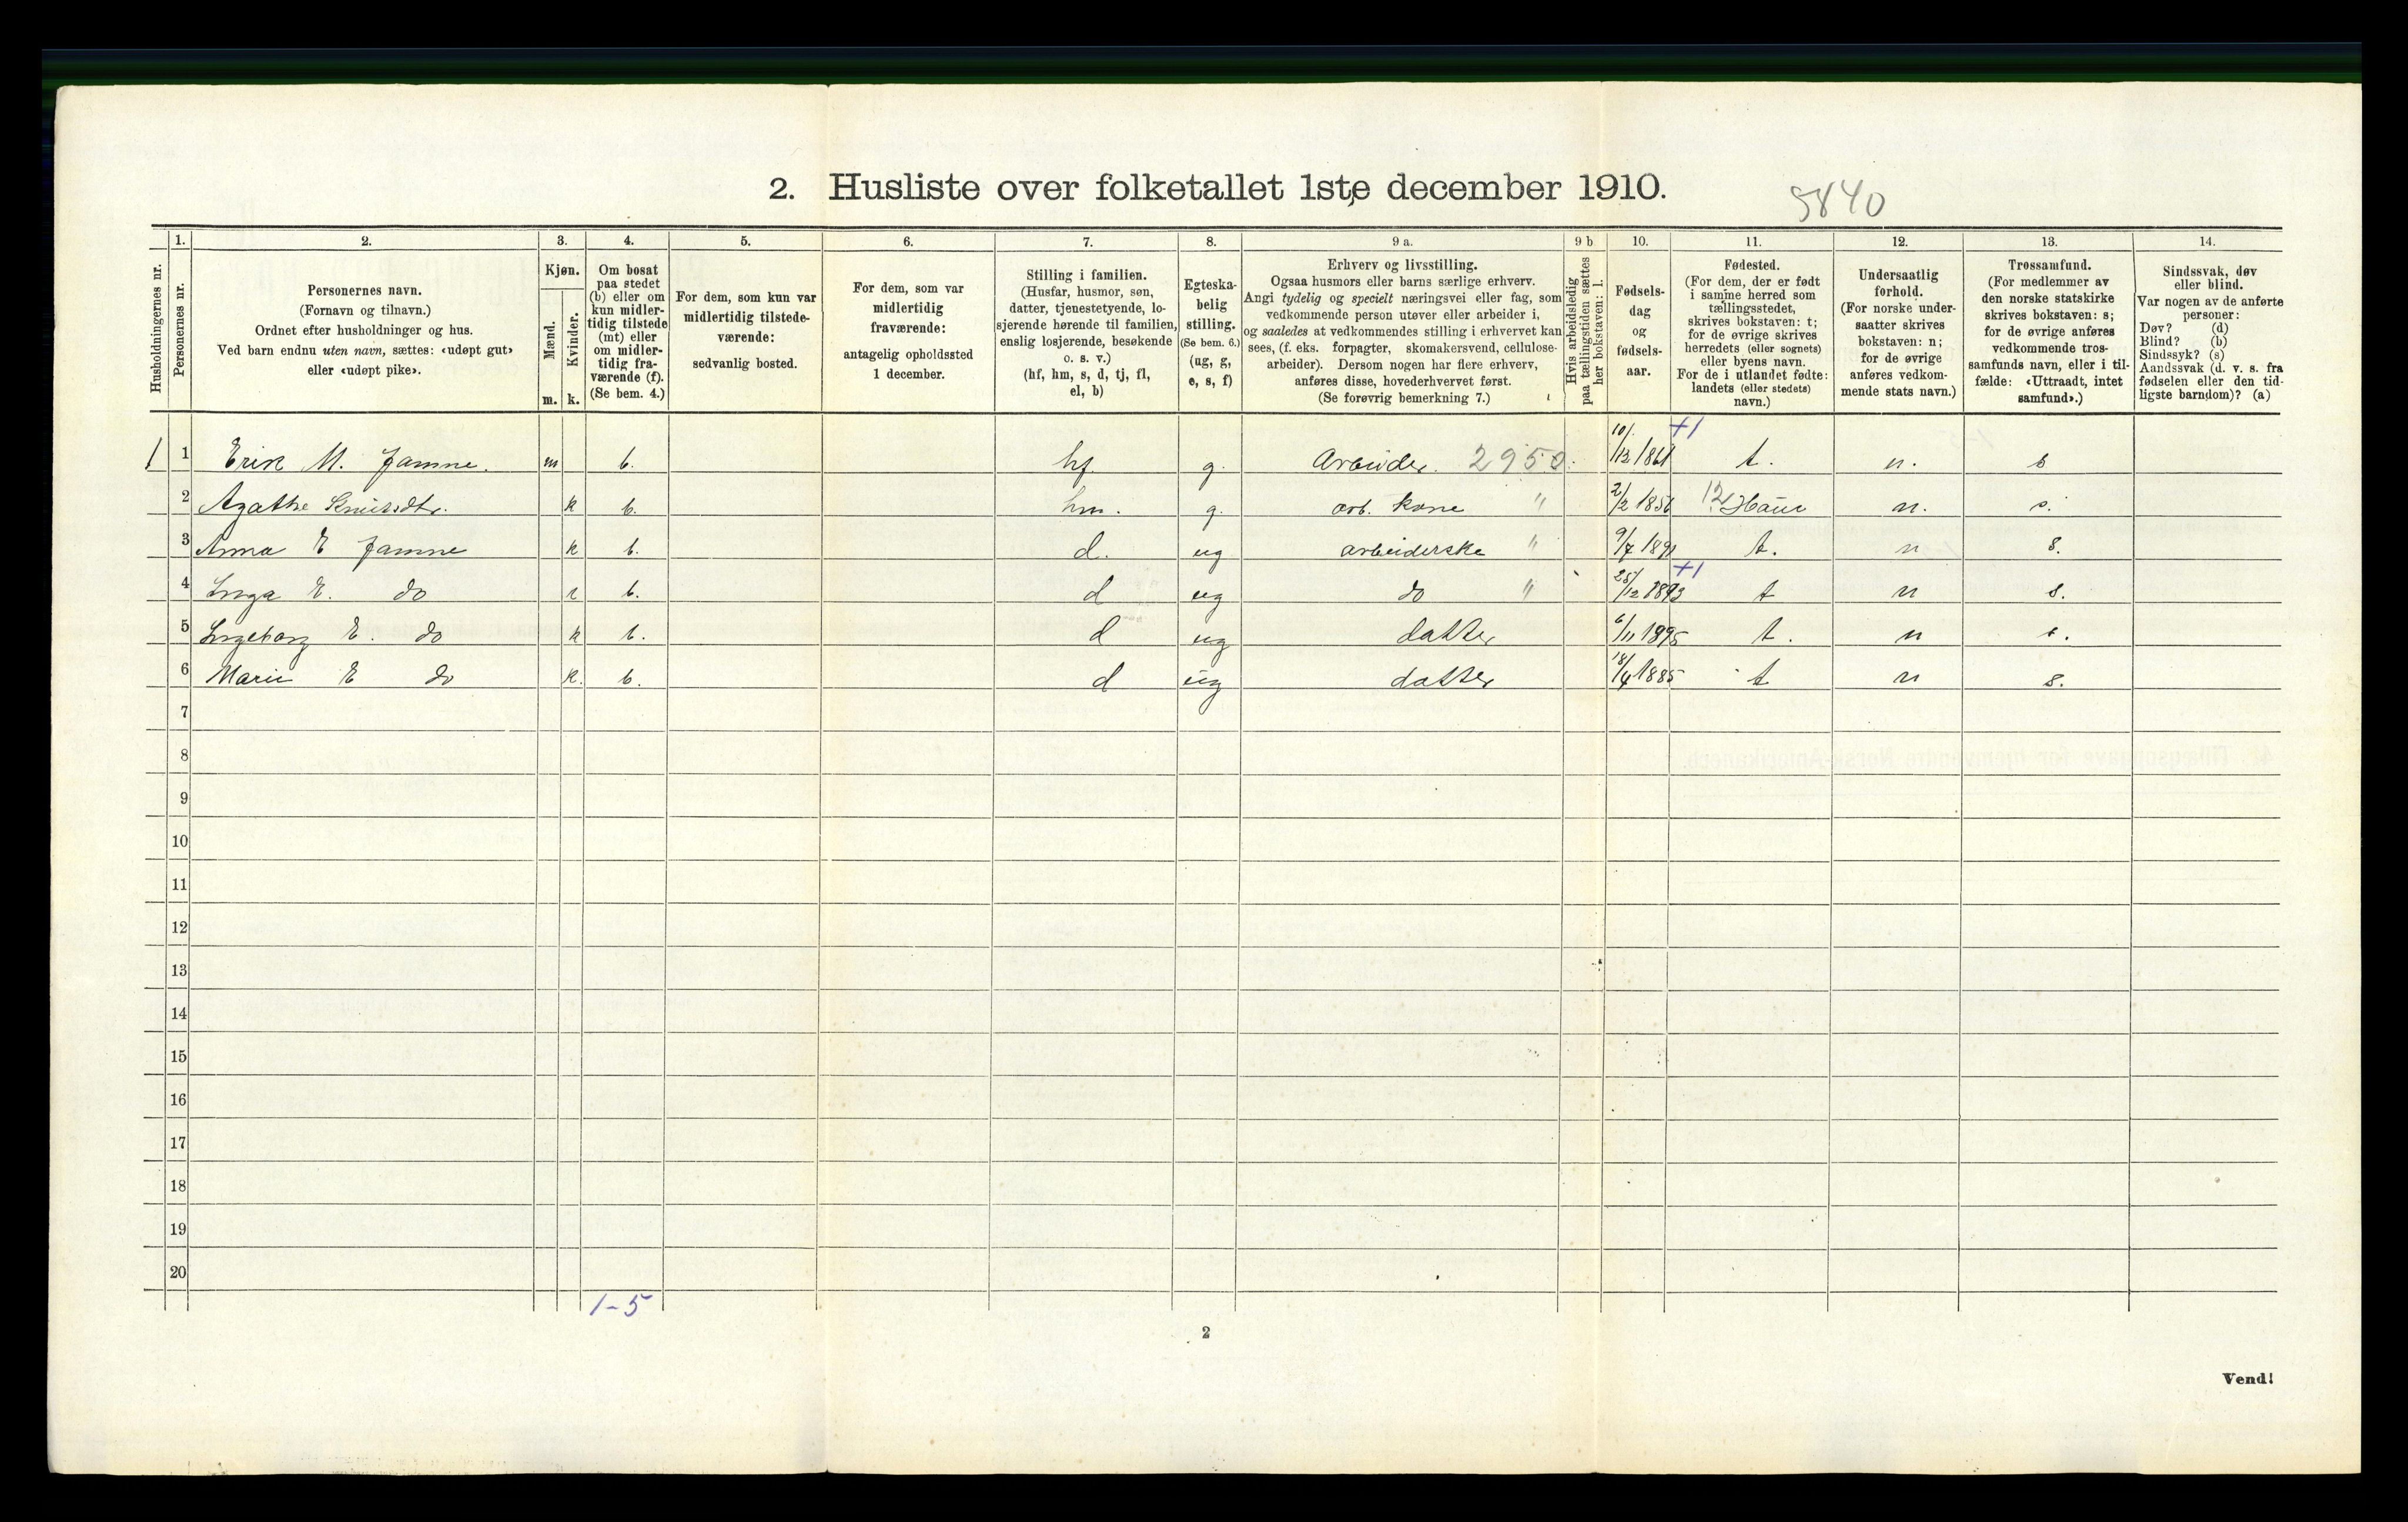 2. Husliste over folketallet 1ste december 1910.
5840
Husholdningernes nr.
1. Personernes nr.
2. Personernes navn.
(Fornavn og tilnavn.)
Ordnet efter husholdninger og hus.
Ved barn endnu uten navn, sættes: «udøpt gut»
eller «udøpt pike».
3. Kjøn.
Mænd. m.
Kvinder. k.
4. Om bosat
paa stedet
(b) eller om
kun midler-
tidig tilstede
(mt) eller
om midler-
tidig fra-
værende (f).
(Se bem. 4.)
5. For dem, som kun var
midlertidig tilstede-
værende:
sedvanlig bosted.
6. For dem, som var
midlertidig
fraværende:
antagelig opholdssted
1 december.
7. Stilling i familien.
(Husfar, husmor, søn,
datter, tjenestetyende, lo-
sjerende hørende til familien,
enslig losjerende, besøkende
o. s. v.)
(hf, hm, s, d, tj, fl,
el, b)
8. Egteska-
belig
stilling.
(Se bem. 6.)
(ug, g,
e, s, f)
9 a. Erhverv og livsstilling.
Ogsaa husmors eller barns særlige erhverv.
Angi tydelig og specielt næringsvei eller fag, som
vedkommende person utøver eller arbeider i,
og saaledes at vedkommendes stilling i erhvervet kan
sees, (f. eks. forpagter, skomakersvend, cellulose-
arbeider). Dersom nogen har flere erhverv,
anføres disse, hovederhvervet først.
(Se forøvrig bemerkning 7.)
9 b Hvis arbeidsledig
paa tællingstiden sættes
her bokstaven: l.
10. Fødsels-
dag
og
fødsels-
aar.
11. Fødested.
(For dem, der er født
i samme herred som
tællingsstedet,
skrives bokstaven: t;
for de øvrige skrives
herredets (eller sognets)
eller byens navn.
For de i utlandet fødte:
landets (eller stedets)
navn.)
12. Undersaatlig
forhold.
(For norske under-
saatter skrives
bokstaven: n;
for de øvrige
anføres vedkom-
mende stats navn.)
13. Trossamfund.
(For medlemmer av
den norske statskirke
skrives bokstaven: s;
for de øvrige anføres
vedkommende tros-
samfunds navn, eller i til-
fælde: «Uttraadt, intet
samfund».)
14. Sindssvak, døv
eller blind.
Var nogen av de anførte
personer:
Døv? (d)
Blind? (b)
Sindssyk? (s)
Aandssvak (d. v. s. fra
fødselen eller den tid-
ligste barndom)? (a)
1 1 Erik M. Jamne. m b. hf. g. Arbeider. 2950. 10/12 1861 +1 t. n. s
2 Agathe Knutsdtr. k b. hm. g. arb. kone " 2/2 1856 12 Haus n. s.
3 Anna E Jamne k b. d. ug arbeiderske " 9/7 1891 t. n s.
4 Inga E. do k b. d ug do " 25/12 1893 +1 t n s.
5 Ingeborg E. do k b. d ug datter 6/11 1895 t. n s.
6 Marie E do k. b. d ug datter 18/4 1885 t n s.
7
8
9
10
11
12
13
14
15
16
17
18
19
20
1-5
2
Vend!